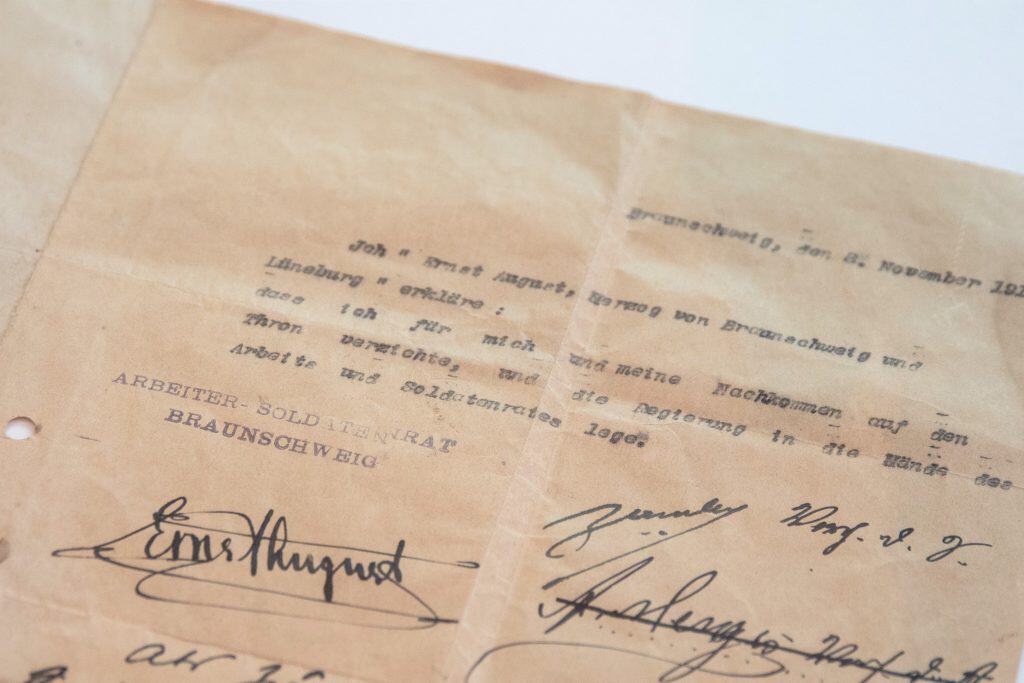 Braunschweig, den 8. November 191
Jch " Ernst August, Herzog von Braunschweig und
Lüneburg " erkläre :
dass ich für mich und meine Nachkommen auf den
Thron verzichte, und die Regierung in die Hände des
Arbeits und Soldatenrates lege.
ARBEITER- SOLDATENRAT
BRAUNSCHWEIG
Ernst August